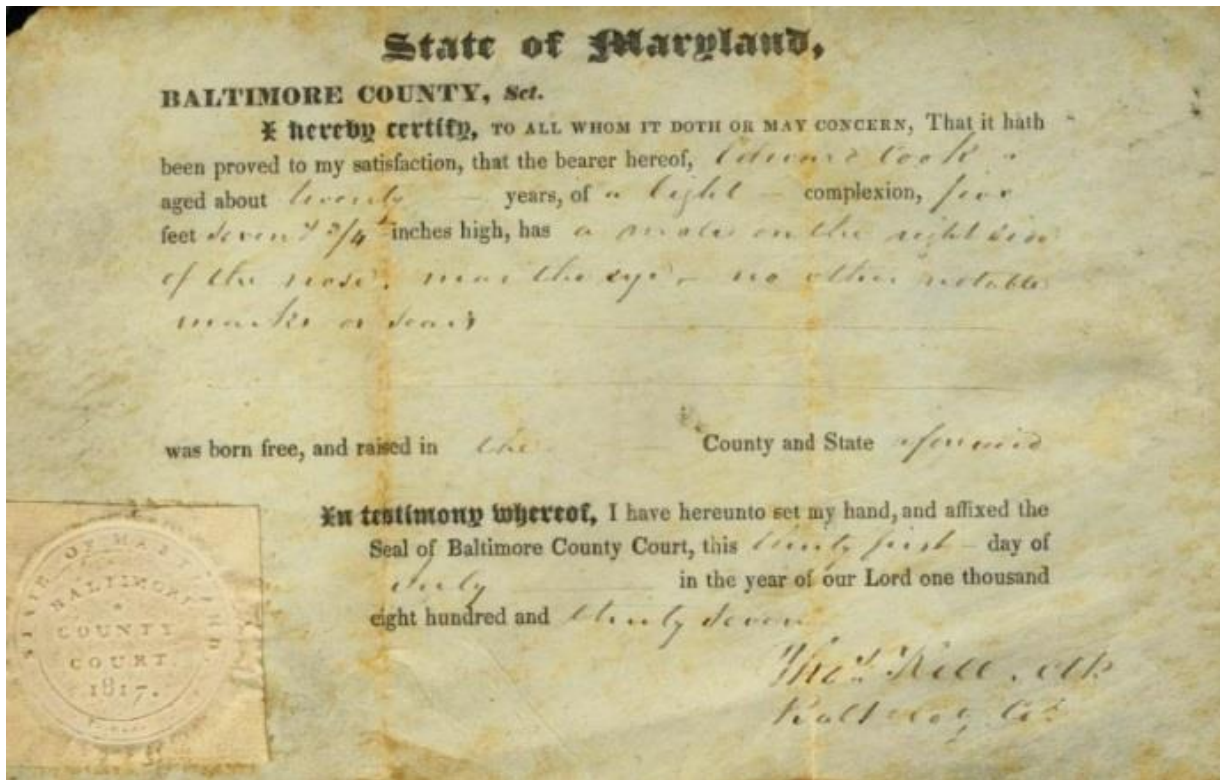 State of Maryland,
BALTIMORE COUNTY, Sct.
I hereby certify, TO ALL WHOM IT DOTH OR MAY CONCERN, That it hath
been proved to my satisfaction, that the bearer hereof, Edward Cook
aged about twenty years, of a light complexion, five
feet seven & 3/4 inches high, has a mole on the right side
of the nose, near the eye, no other notable
marks or scars
was born free, and raised in the County and State aforesaid
In testimony whereof, I have hereunto set my hand, and affixed the
Seal of Baltimore County Court, this twenty first day of
July in the year of our Lord one thousand
eight hundred and thirty seven
Thos. Kell. clk
Balt
STATE OF MARYLAND.
BALTIMORE
COUNTY
COURT.
1817.